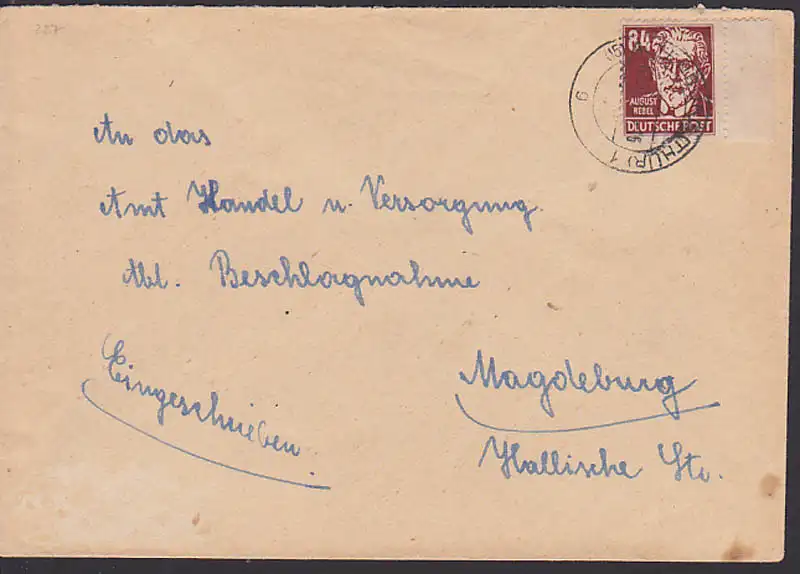 227
84
AUGUST
BEBEL
DEUTSCHE POST
(THÜR) 1
An das
Amt Handel u. Versorgung.
Abt. Beschlagnahme
Eingeschrieben.
Magdeburg
Hallische Str.